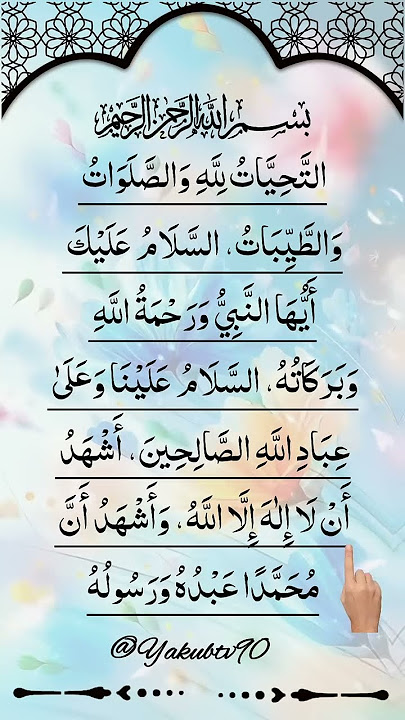 بسم الله الرحمن الرحيم
التَّحِيَّاتُ لِلَّهِ وَالصَّلَوَاتُ
وَالطَّيِّبَاتُ، السَّلَامُ عَلَيْكَ
أَيُّهَا النَّبِيُّ وَرَحْمَةُ اللَّهِ
وَبَرَكَاتُهُ، السَّلَامُ عَلَيْنَا وَعَلَىٰ
عِبَادِ اللَّهِ الصَّالِحِينَ، أَشْهَدُ
أَنْ لَا إِلٰهَ إِلَّا اللَّهُ، وَأَشْهَدُ أَنَّ
مُحَمَّدًا عَبْدُهُ وَرَسُولُهُ
@Yakubtv90